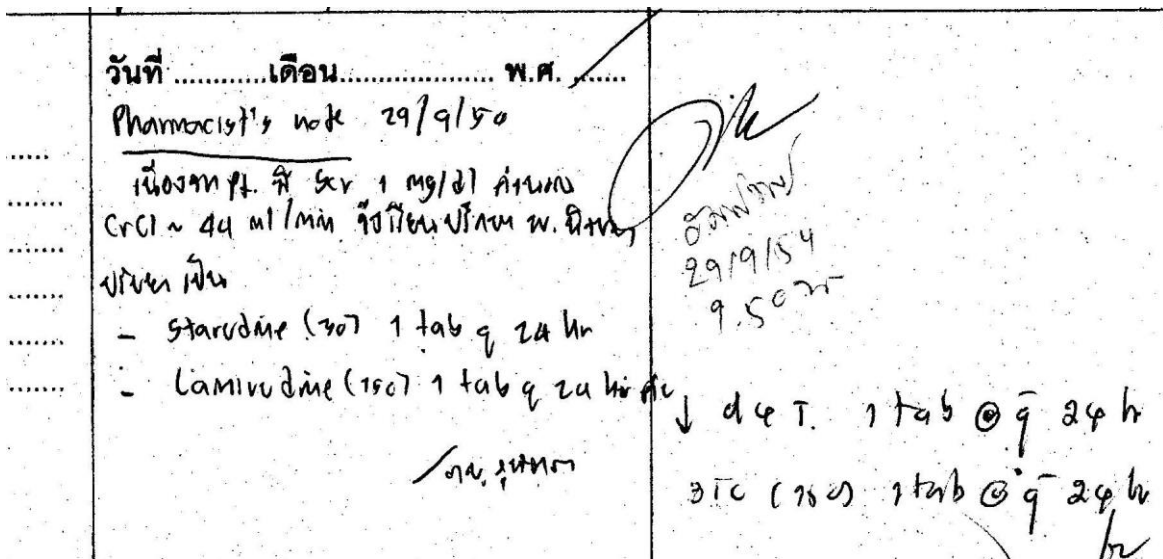 วันที่ ............เดือน..................... พ.ศ. .......
Pharmacist's note 29/9/54
เนื่องจาก pt. มี Scr 1 mg/dl คำนวณ
CrCl ~ 44 ml/min จึงเรียนปรึกษา พ. พิจารณา
ปรับยา เป็น
- Stavudine (30) 1 tab q 24 hr
- Lamivudine (150) 1 tab q 24 hr ค่ะ
29/9/54
9.50 น
↓ d4T. 1 tab q 24 h
3TC (150) 1 tab q 24 h